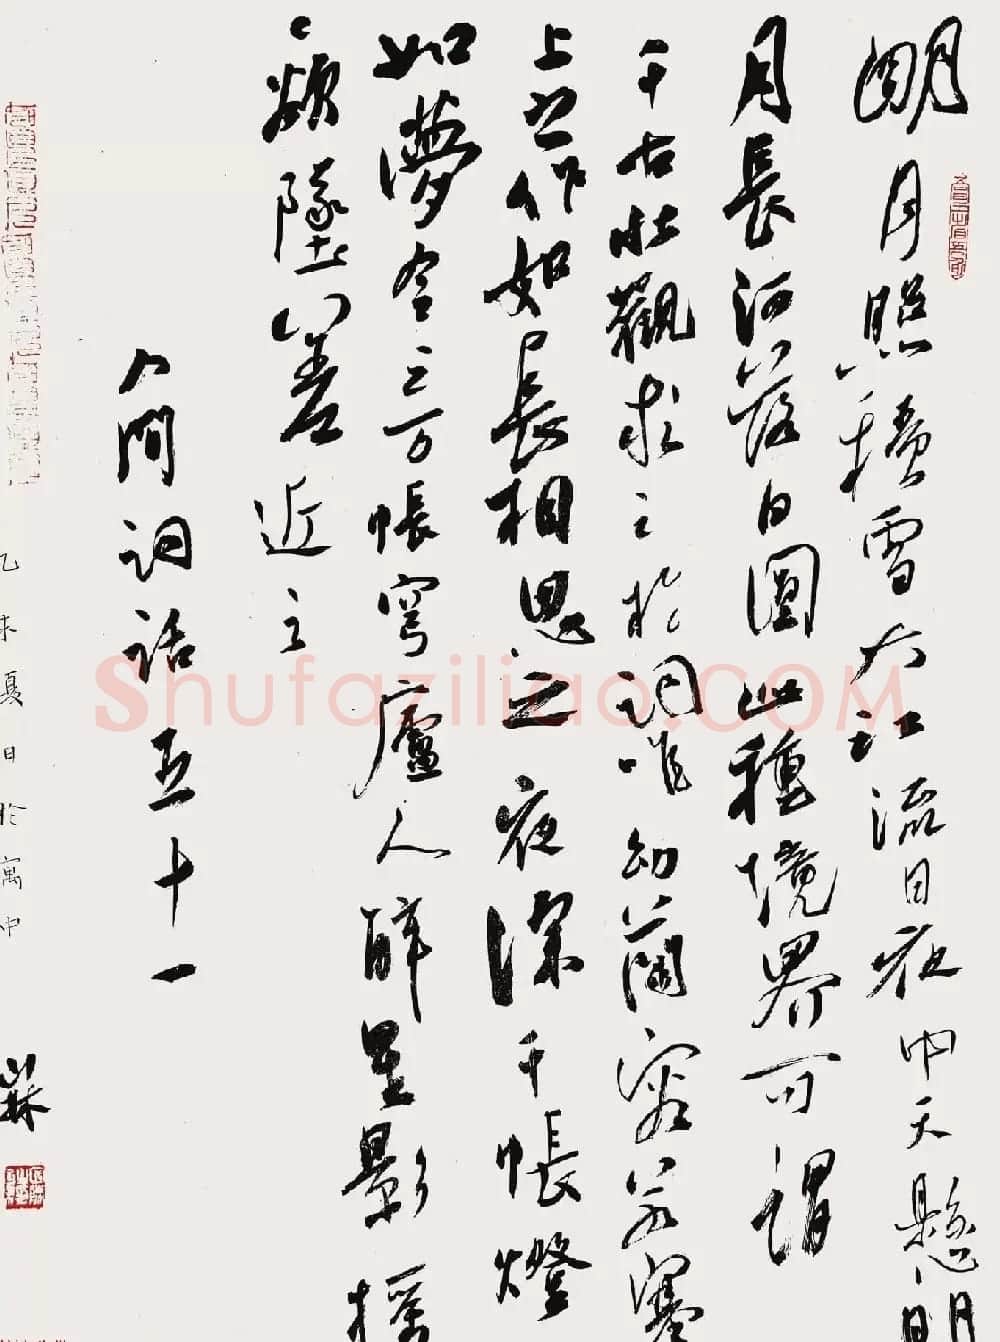 明月照積雪大江流日夜中天懸明
月長河落日圓此種境界可謂
千古壯觀求之於詞唯納蘭容若塞
上之作如長相思之夜深千帳燈
如夢令之万帳穹廬人醉星影搖
〻欲墜差近之
人間詞話五十一
乙未夏日於寓中
Shufaziliao.COM